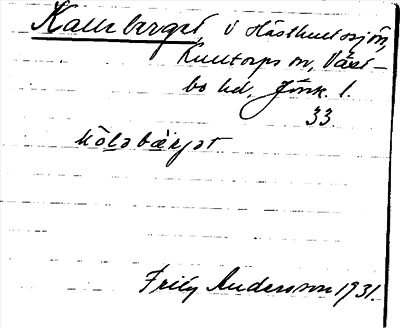 Kalleberget, V Hästhultasjön,
Kulltorps sn, Väst-
bo hd, Jönk. l.
33.
kòləbærjət
Frity Andersson 1931.